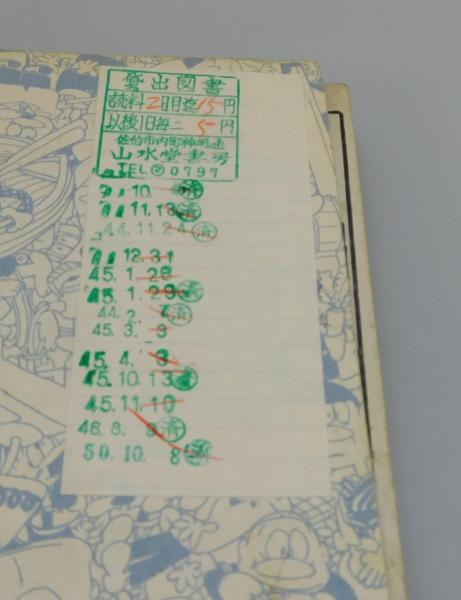 貸出図書
読料2日目迄15円
以後1日毎ニ5円
佐伯市内町神明通
山水堂書房
TEL②0797
10.
11.13 済
44.11.24 済
12.31
45.1.28
45.1.29
44.2. 済
45.3.3
45.4.3
45.10.13
45.11.10
46.8.8 済
50.10.8